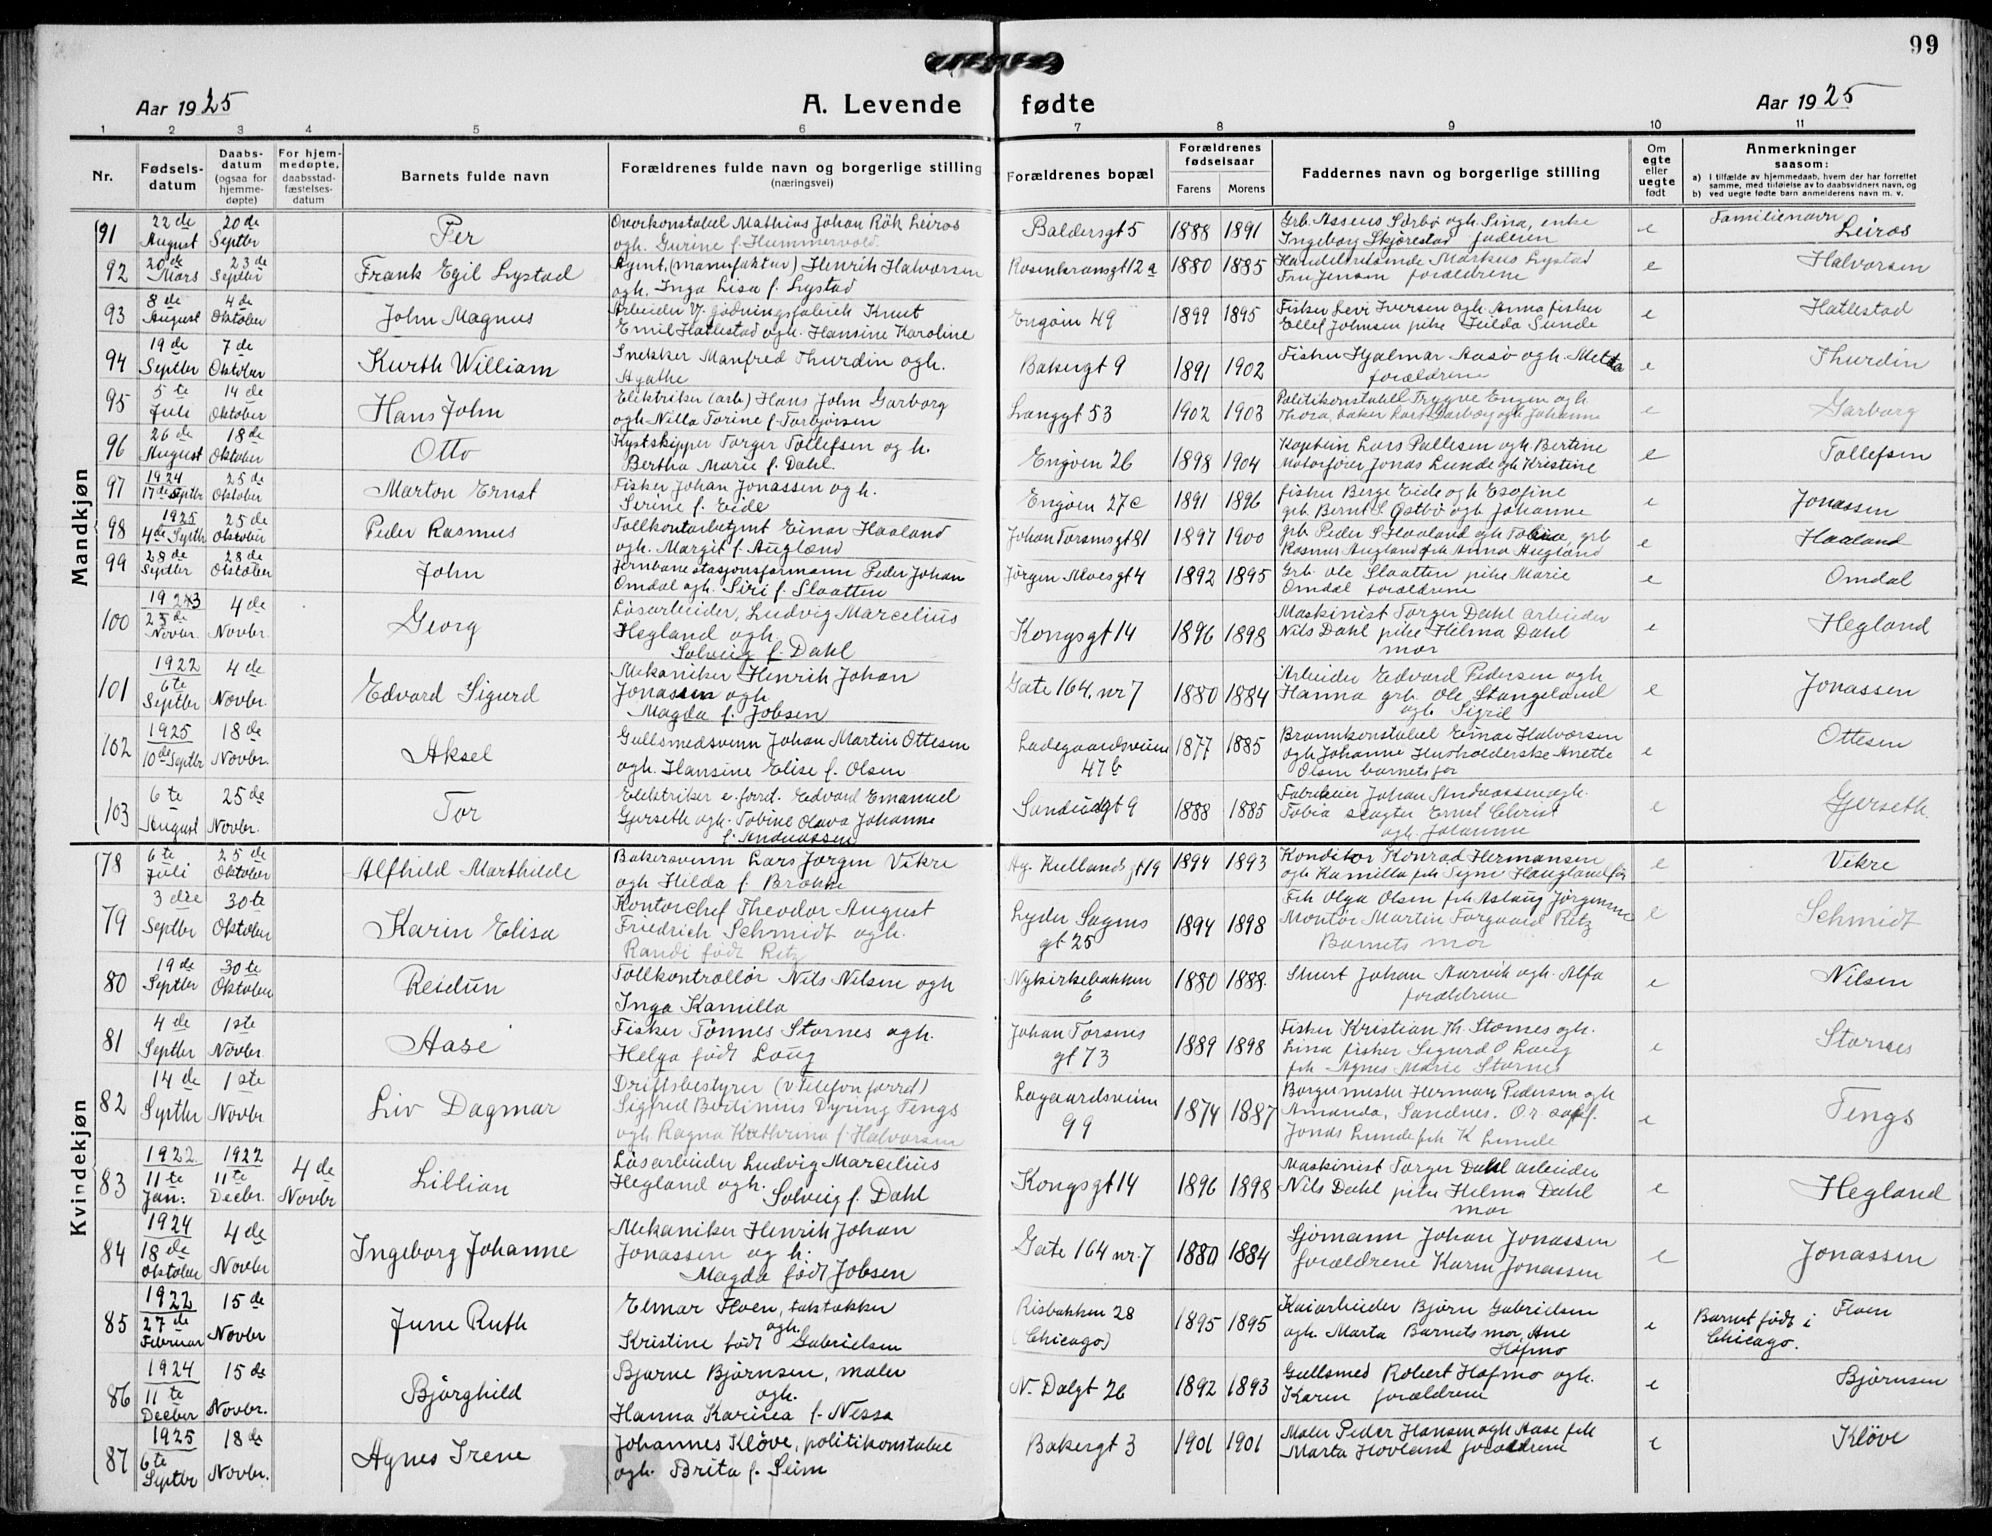 99
Aar 1925
A. Levende fødte
Aar 1925
1 2 3 4 5 6 7 8 9 10 11
Nr.
Fødsels-
datum
Daabs-
datum
(ogsaa for
hjemme-
døpte)
For hjem-
medøpte,
daabsstad-
fæstelses-
datum
Barnets fulde navn
Forældrenes fulde navn og borgerlige stilling
(næringsvei)
Forældrenes bopæl
Forældrenes
fødselsaar
Farens Morens
Faddernes navn og borgerlige stilling
Om
egte
eller
uegte
født
Anmerkninger
saasom:
a) I tilfælde av hjemmedaab, hvem der har forrettet
samme, med tilføielse av to daabsvidners navn, og
b) ved uegte fødte barn anmelderens navn m. v.
Mandkjøn
Familienavn
91 22de August 20de Septbr Per
Overkonstabel Mathias Johan Rök Leiros
ogh. Gurine f. Hummervold
Baldersgt 5 1888 1891
Grb. Assens Sørbø ogh. Sina, enke
Ingeborg Skjørestad faderen
e Leiros
92 20de Mars 23de Septbr Frank Egil Lystad
Agent (manufaktur) Henrik Halvorsen
ogh. Inga Lisa f. Lystad
Rosenkransgt 12a 1880 1885
Handelsreisende Markus Lystad
Fru Jensen forældrene
e Halvorsen
93 8de August 4de Oktober John Magnus
Arbeider v. gödningsfabrik Knut
Emil Hatlestad ogh. Hansine Karoline
Engøin 49 1899 1895
Fisker Levi Iversen ogh. Anna fisker
Ellef Johnsen pike Hilda Sunde
e Hatlestad
94 19de Septbr 7de Oktober Kurth William
Snekker Manfred Thurdin ogh.
Agathe
Bakergt 9 1891 1902
Fisker Hjalmar Aasø ogh. Metta
forældrene
e Thurdin
95 5te Juli 14de Oktober Hans John
Elektriker (arb) Hans John Garborg
ogh. Nilla Torine f. Torbjørsen
Langgt 53 1902 1903
Politikonstabel Trygve Engen ogh
Thora, baker Lars Garborg ogh Johanne
e Garborg
96 26de August 18de Oktober Otto
Kystskipper Torger Tollefsen og h.
Bertha Marie f. Dahl.
Engöen 26 1898 1904
Kaptein Lars Pallesen ogh Bertine
Motorfører Jonas Lunde ogh Kristine
e Tollefsen
97 1924 17de Septbr 25de Oktober Marton Ernst
Fisker Johan Jonassen ogh.
Serine f. Eide
Engøen 27c 1891 1896
Fisker Berge Eide ogh Esofine
grb Bernt L Østbø ogh Johanne
e Jonassen
98 1925 4de Septbr 25de Oktober Peder Rasmus
Tollkontorbetjent Einar Haaland
ogh. Margit f. Augland
Johan Torsensgt 81 1897 1900
grb Peder S Haaland ogh Toline, grb
Rasmus Augland frk Anna Augland
e Haaland
99 28de Septbr 28de Oktober John
Jernbanestasjonsformann Peder Johan
Omdal ogh. Siri f. Slaatten
Jørgen Moesgt 4 1892 1895
Grb. Ole Slaatten pike Marie
Omdal forældrene
e Omdal
100 1923 25de Novbr. 4de Novbr. Georg
Løsarbeider, Ludvig Marcelius
Hegland ogh.
Solveig f. Dahl
Kongsgt 14 1896 1898
Maskinist Torger Dahl arbeider
Nils Dahl pike Helma Dahl
mor
e Hegland
101 1922 6te Septbr 4de Novbr. Edvard Sigurd
Mekaniker Henrik Johan
Jonassen ogh
Magda f. Jobsen
Gate 164, nr 7 1880 1884
Arbeider Edvard Pedersen ogh
Hanna grb. Ole Stangeland
ogh Sigrid
e Jonassen
102 1925 10de Septbr 18de Novbr. Aksel
Gullsmedsvenn Johan Martin Ottesen
ogh. Hansine Elise f. Olsen
Ladegaardsveien
47b 1877 1885
Brannkonstabel Einar Halvorsen
ogh Johanne Husholderske Anette
Olsen barnets far
e Ottesen
103 6te August 25de Novbr. Tor
Elektriker e. forret. Edvard Emanuel
Gjerseth ogh. Tobine Olava Johanne
f. Andreassen
Sandeidgt 9 1888 1885
Fabrikeier Johan Andreassen ogh.
Tobia slagter Emil Christ
ogh. Johanne
e Gjerseth.
Kvindekjøn
78 6te Juli 25de Oktober Alfhild Marthilde
Bakersvenn Lars Jørgen Vikre
ogh Hilda f. Brokke
Ag. Kiellandsgt 19 1894 1893
Konditor Konrad Hermansen
ogh Kamilla frk Signe Haugland far
e Vikre
79 3die Septbr 30te Oktober Karin Elisa
Kontorchef Theodor August
Friedrich Schmidt ogh.
Randi født Retz
Lyder Sagens
gt 25 1894 1898
Frk Olga Olsen frk Aslaug Jørgensen
Montør Martin Torgaard Retz
Barnets mor
e Schmidt
80 19de Septbr 30te Oktober Reidun
Tollkontrollør Nils Nilsen ogh
Inga Kamilla
Nykirkebakken
6 1880 1888.
Stuert Johan Aarvik ogh. Alfa
forældrene
e Nilsen
81 4de Septbr 1ste Novbr. Aase
Fisker Tönnes Stornes ogh.
Helga født Laug
Johan Torsens
gt 73 1889 1898
Fisker Kristian Th. Stornes ogh.
Lina fisker Sigurd O Laug
frk Agnes Marie Stornes
e Stornes
82 14de Septbr 1ste Novbr Liv Dagmar
Driftsbestyrer (v Telefon forret)
Sigfred Bodinius Dyring Tengs
ogh. Ragna Kathrina f. Halvorsen
Lagaardsveien
99 1874 1887
Borgermester Herman Pedersen ogh
Amanda, Sandnes. O.r. sakf.
Jonas Lunde frk K Lunde
e Tengs
83 1922 11te Jan: 1922 11te Decbr. 4de Novbr Lillian
Løsarbeider Ludvig Marcelius
Hegland ogh.
Solveig f. Dahl
Kongsgt 14 1896 1898
Maskinist Torger Dahl arbeider
Nils Dahl pike Helma Dahl
mor
e Hegland
84 1924 18de Oktober 4de Novbr Ingeborg Johanne
Mekaniker Henrik Johan
Jonassen og h.
Magda født Jobsen
Gate 164 nr. 7 1880 1884
Sjømann Johan Jonassen
forældrene Karen Jonassen
e Jonassen
85 1922 27de Februar 15de Novbr June Ruth
Elmar Floen, taktækker
ogh.
Kristine født Gabrielsen
Risbakken 28
(Chicago) 1895 1895
Kaiarbeider Bjørn Gabrielsen
ogh. Marta Barnets mor, Ane
Hofmo
e Barnet født i
Chicago.
Floen
86 1924 11te Decbr 15de Novbr. Bjørghild
Bjarne Bjørnsen, maler
ogh.
Hanna Karina f. Nessa
N. Dalgt 26 1892 1893
Gullsmed Robert Hofmo ogh.
Karen forældrene
e Bjørnsen
87 1925 6te Septbr 18de Novbr. Agnes Irene
Johannes Kløve, politikonstabel
ogh. Brita f. Seim
Bakergt 3 1901 1901
Maler Peder Hansen ogh Aase frk
Marta Hovland forældrene
e Kløve